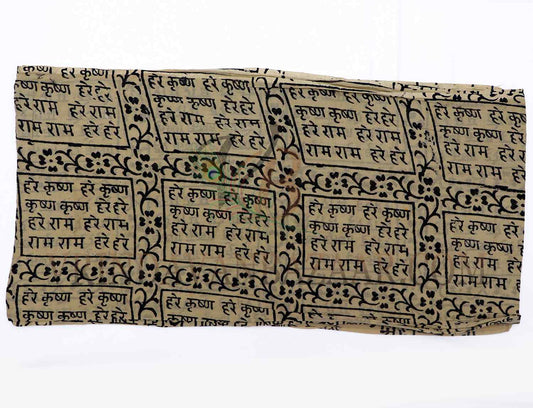 हरे कृष्ण हरे कृष्ण
कृष्ण कृष्ण हरे हरे
हरे राम हरे राम
राम राम हरे हरे
हरे कृष्ण हरे कृष्ण
कृष्ण कृष्ण हरे हरे
हरे राम हरे राम
राम राम हरे हरे
हरे कृष्ण हरे कृष्ण
कृष्ण कृष्ण हरे हरे
हरे राम हरे राम
राम राम हरे हरे
हरे कृष्ण
कृष्ण कृष्ण हरे
हरे राम हरे
राम राम हरे
हरे कृष्ण हरे कृष्ण
कृष्ण कृष्ण हरे हरे
हरे राम हरे राम
राम राम हरे हरे
हरे कृष्ण हरे कृष्ण
कृष्ण कृष्ण हरे हरे
हरे राम हरे राम
राम राम हरे हरे
हरे कृष्ण हरे कृष्ण
कृष्ण कृष्ण हरे हरे
हरे राम हरे राम
राम राम हरे हरे
हरे कृष्ण हरे
कृष्ण कृष्ण हरे
हरे राम हरे
राम राम हरे
हरे कृष्ण हरे कृष्ण
कृष्ण कृष्ण हरे हरे
हरे कृष्ण हरे कृष्ण
कृष्ण कृष्ण हरे हरे
हरे कृष्ण हरे कृष्ण